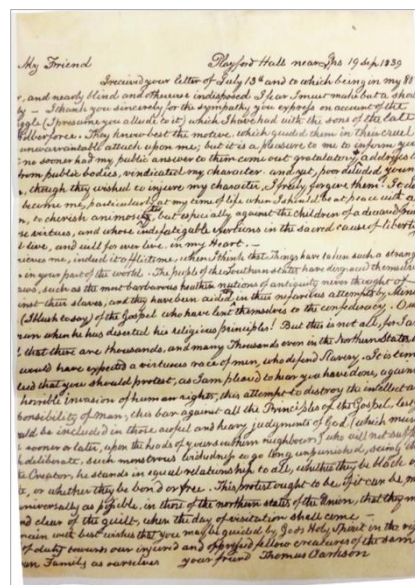 My Friend Playford Hall near Ips 19 Sep. 1839
I received your letter of July 13th and to which being in my 80
, and nearly blind and otherwise indisposed I fear I must make but a shor
ly – I thank you sincerely for the sympathy you express on account of the
ggle (I presume you allude to it) which I have had with the sons of the late
Wilberforce. They know best the motive which guided them in their cruel
unwarrantable attack upon me; but it is a pleasure to me to inform you
no sooner had my public answer to them come out gratulatory addresses
from public bodies, vindicated my character and yet, poor deluded young
, though they wished to injure my character, I freely forgive them. It do
become me, particularly at my time of life when I should be at peace with a
n, to cherish animosity, but especially against the children of a dear
se virtues, and whose indefatigable exertions in the sacred cause of liberty
d live, and will for ever live in my Heart. –
rieves me, indeed it afflicts me, when I think that things have taken such a strang
in your part of the world. The people of the Southern states have disgraced themselve
such as the most barbarous heathen nations of antiquity never thought of
inst their slaves, and they have been aided in their nefarious attempts by Men
(I blush to say) of the Gospel who have lent themselves to the confederacy.
man when he has deserted his religious principles! But this is not all, for I a
d that there are thousands, and many thousands even in the Northern States
would have expected a virtuous race of men, who defend Slavery. It is tim
eed that you should protest, as I am pleased to hear you have done, against
horrible invasion of human rights, this attempt to destroy the intellect
onsibility of Man, this bar against all the Principles of the Gospel, lest
uld be included in those awful and heavy judgments of God (which must
sooner or later, upon the heads of your southern neighbours) who will not suff
deliberate, such monstrous wickedness to go long unpunished, seeing th
e Creator, he stands in equal relationship to all, whether they be black o
te, or whether they be bond or free. This protest ought to be if it can be m
universally as possible, in those of the northern states of the Union, that they m
nd clear of the guilt, when the day of visitation shall come –
main with best wishes that you may be guided by Gods Holy Spirit in the
of duty towards our injured and oppressed fellow creatures of the sam
an Family as ourselves your friend Thomas Clarkson